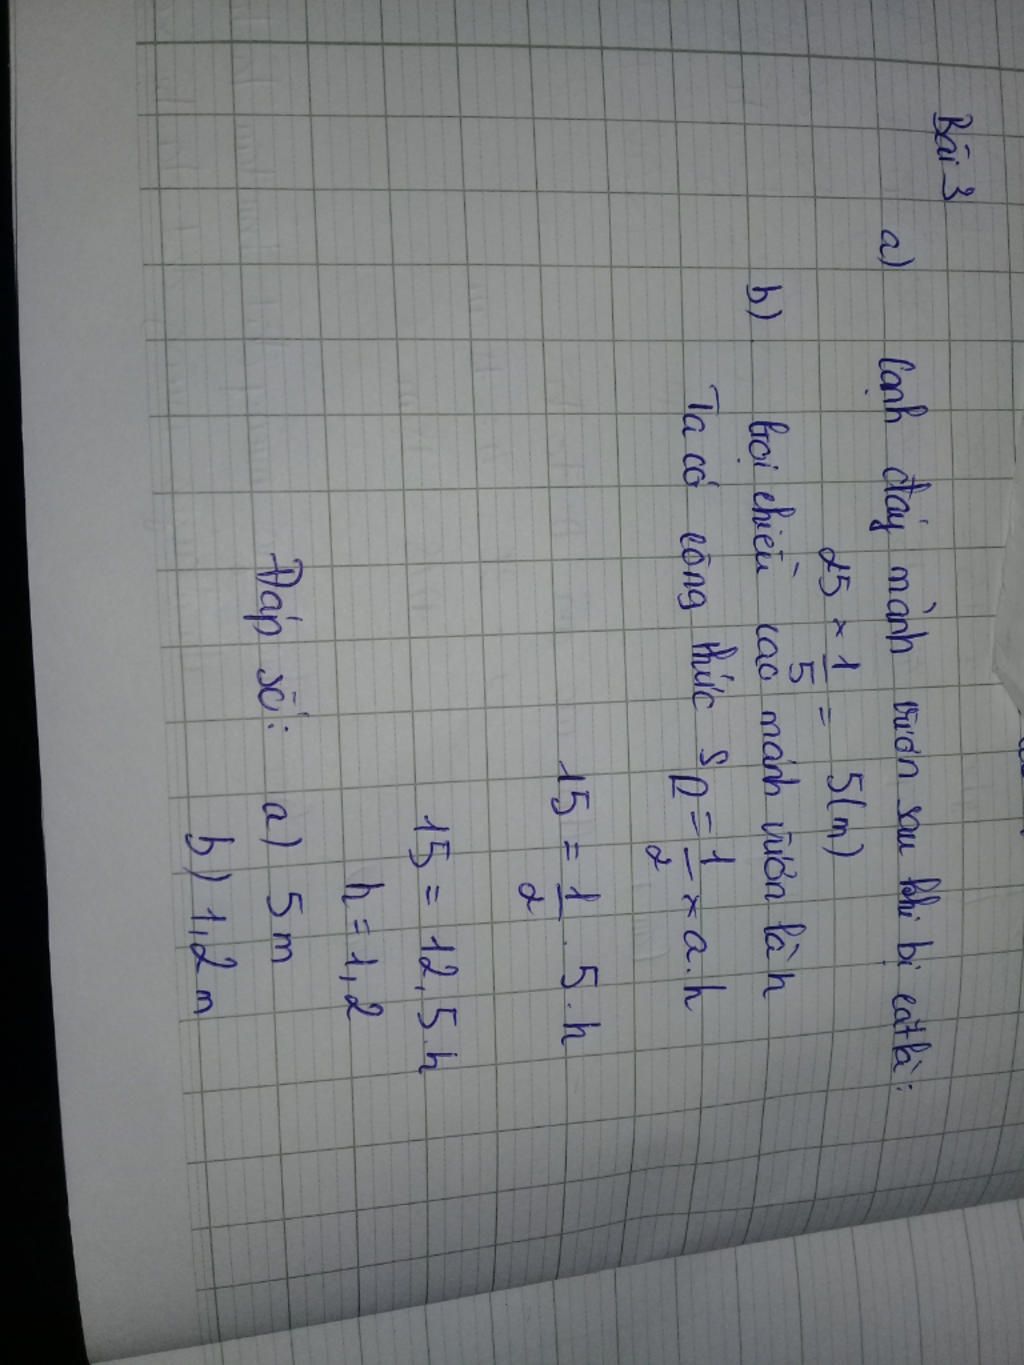 Bài 3
a) Cạnh đáy mảnh vườn sau khi bị cắt là:
25 × 1/5 = 5(m)
b) Gọi chiều cao mảnh vườn là h
Ta có công thức SΔ = 1/2 × a.h
15 = 1/2 . 5.h
15 = 12,5.h
h = 1,2
Đáp số: a) 5m
b) 1,2m